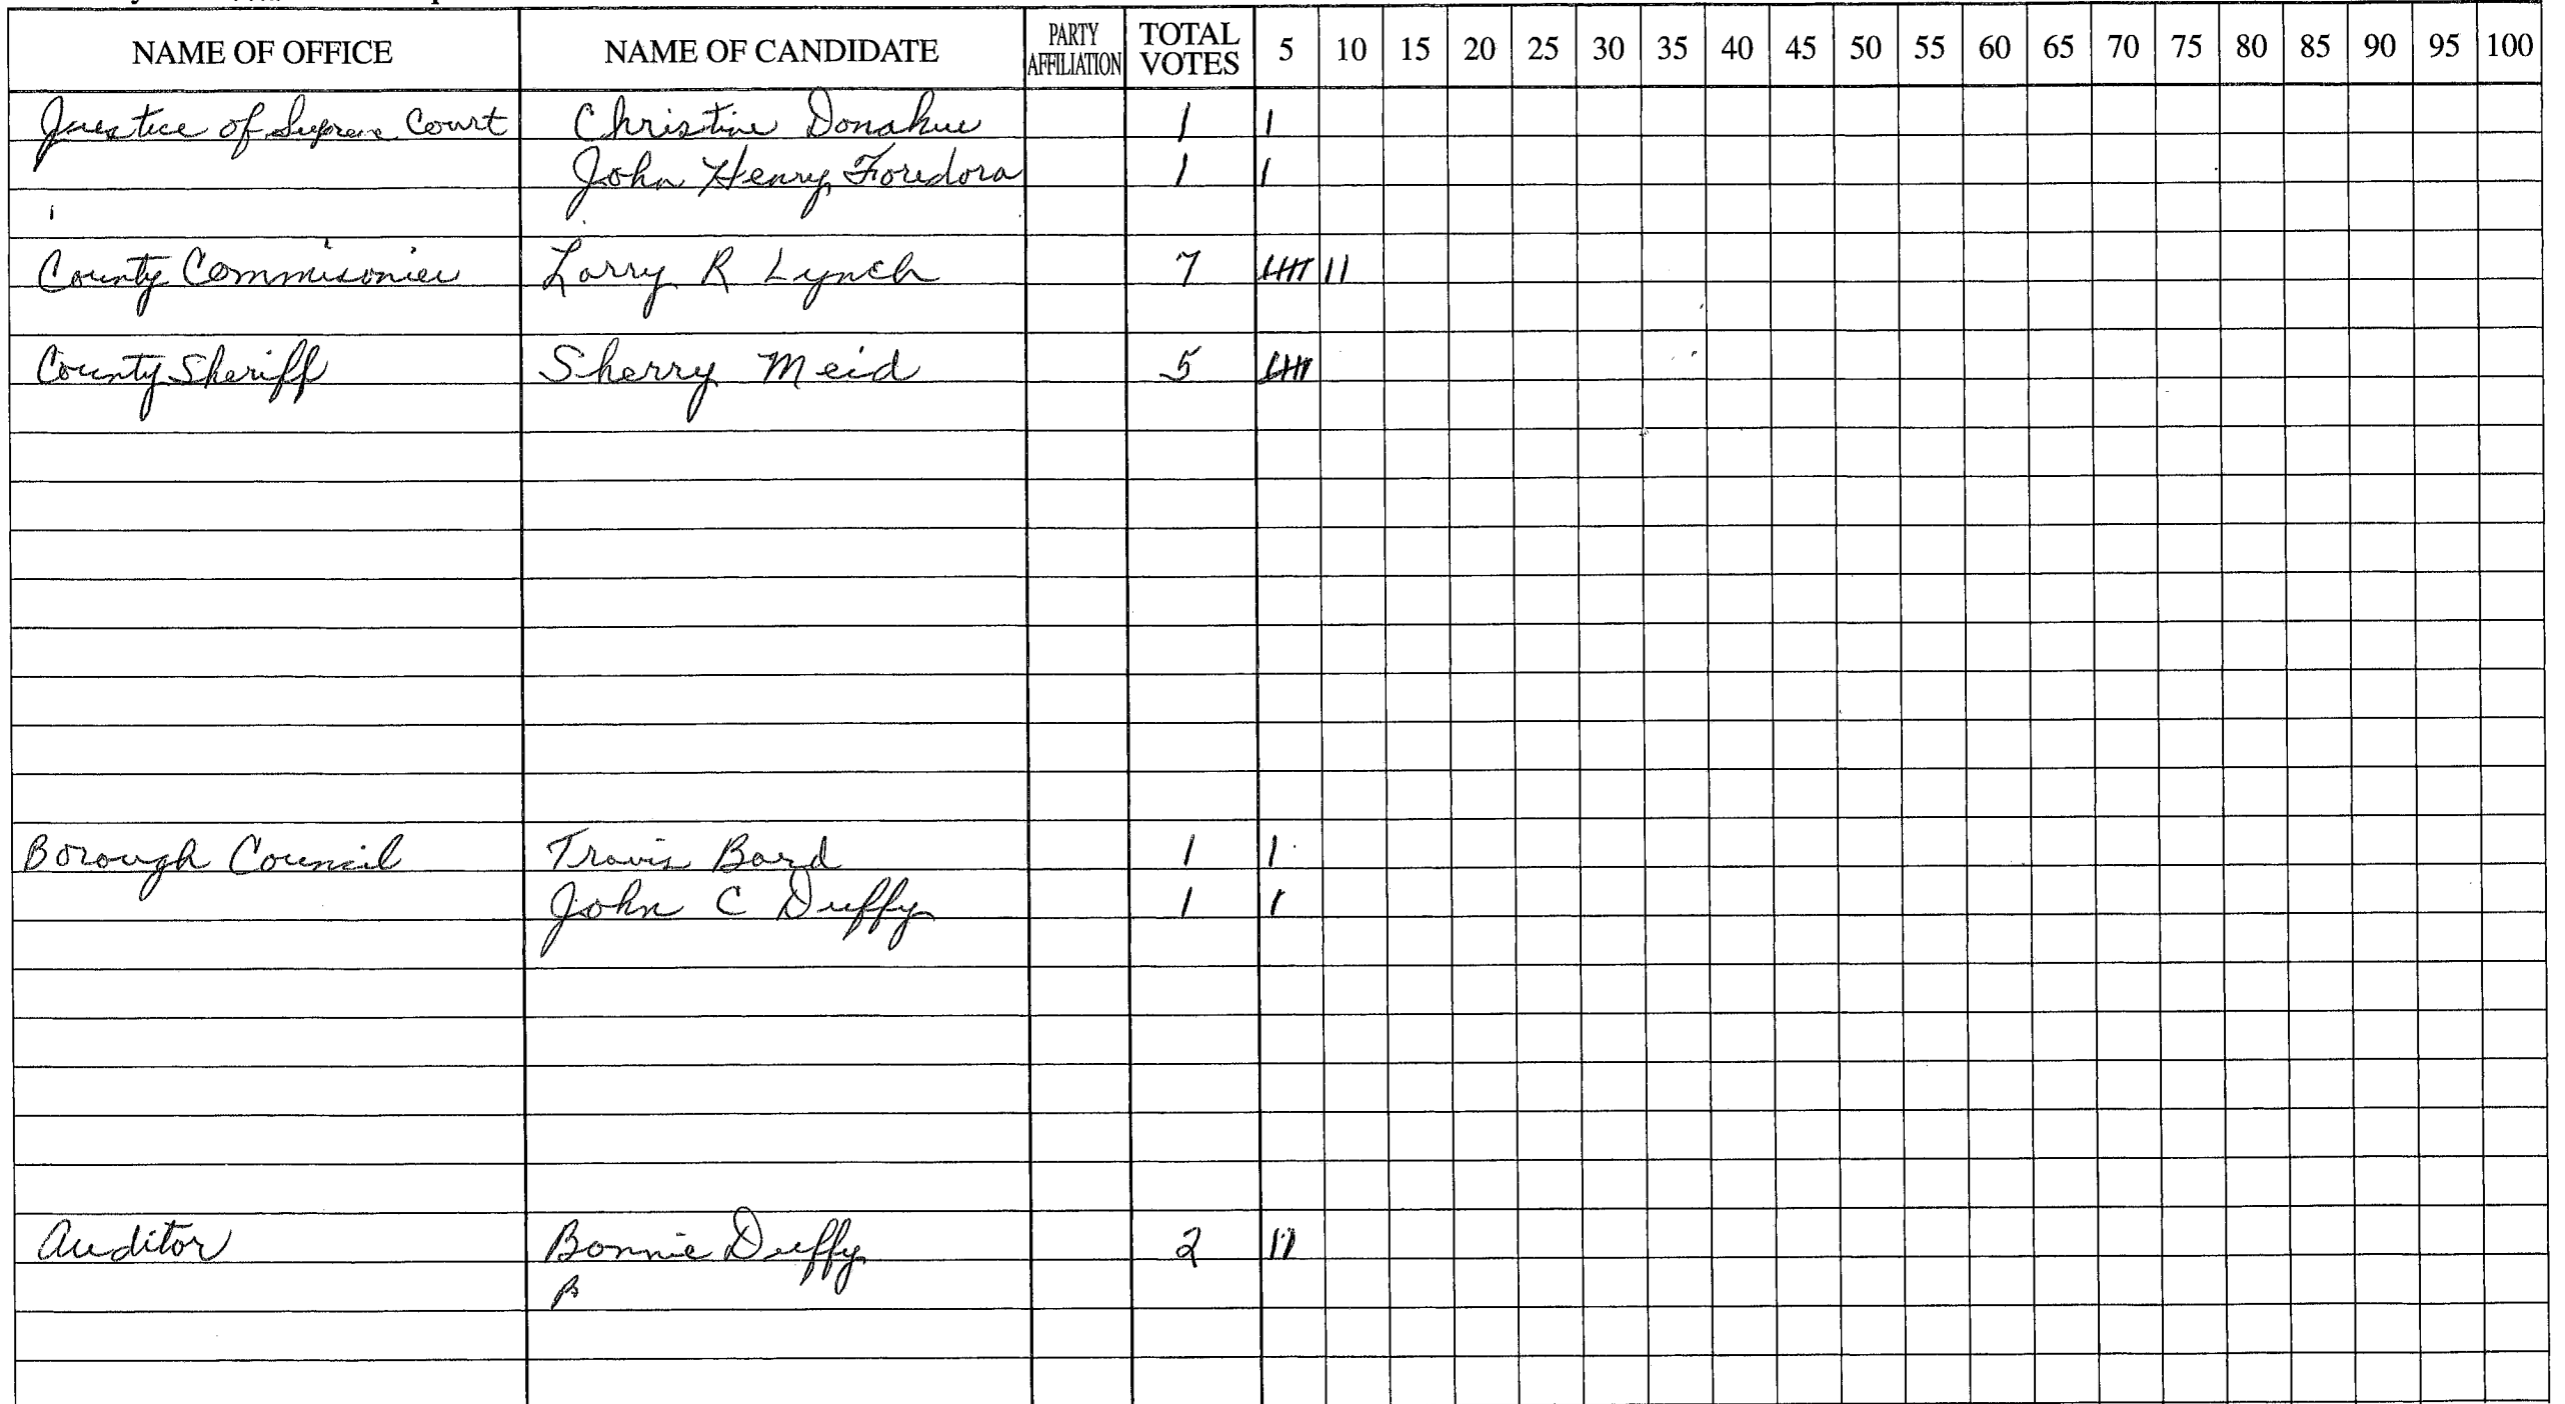 NAME OF OFFICE NAME OF CANDIDATE PARTY AFFILIATION TOTAL VOTES 5 10 15 20 25 30 35 40 45 50 55 60 65 70 75 80 85 90 95 100
Justice of Supreme Court Christine Donahue 1 1
John Henry Foredora 1 1
County Commisonier Larry R Lynch 7 1111 11
County Sheriff Sherry Meid 5 1111
Borough Council Travis Bard 1 1
John C Duffy 1 1
Auditor Bonnie Duffy 2 11
B